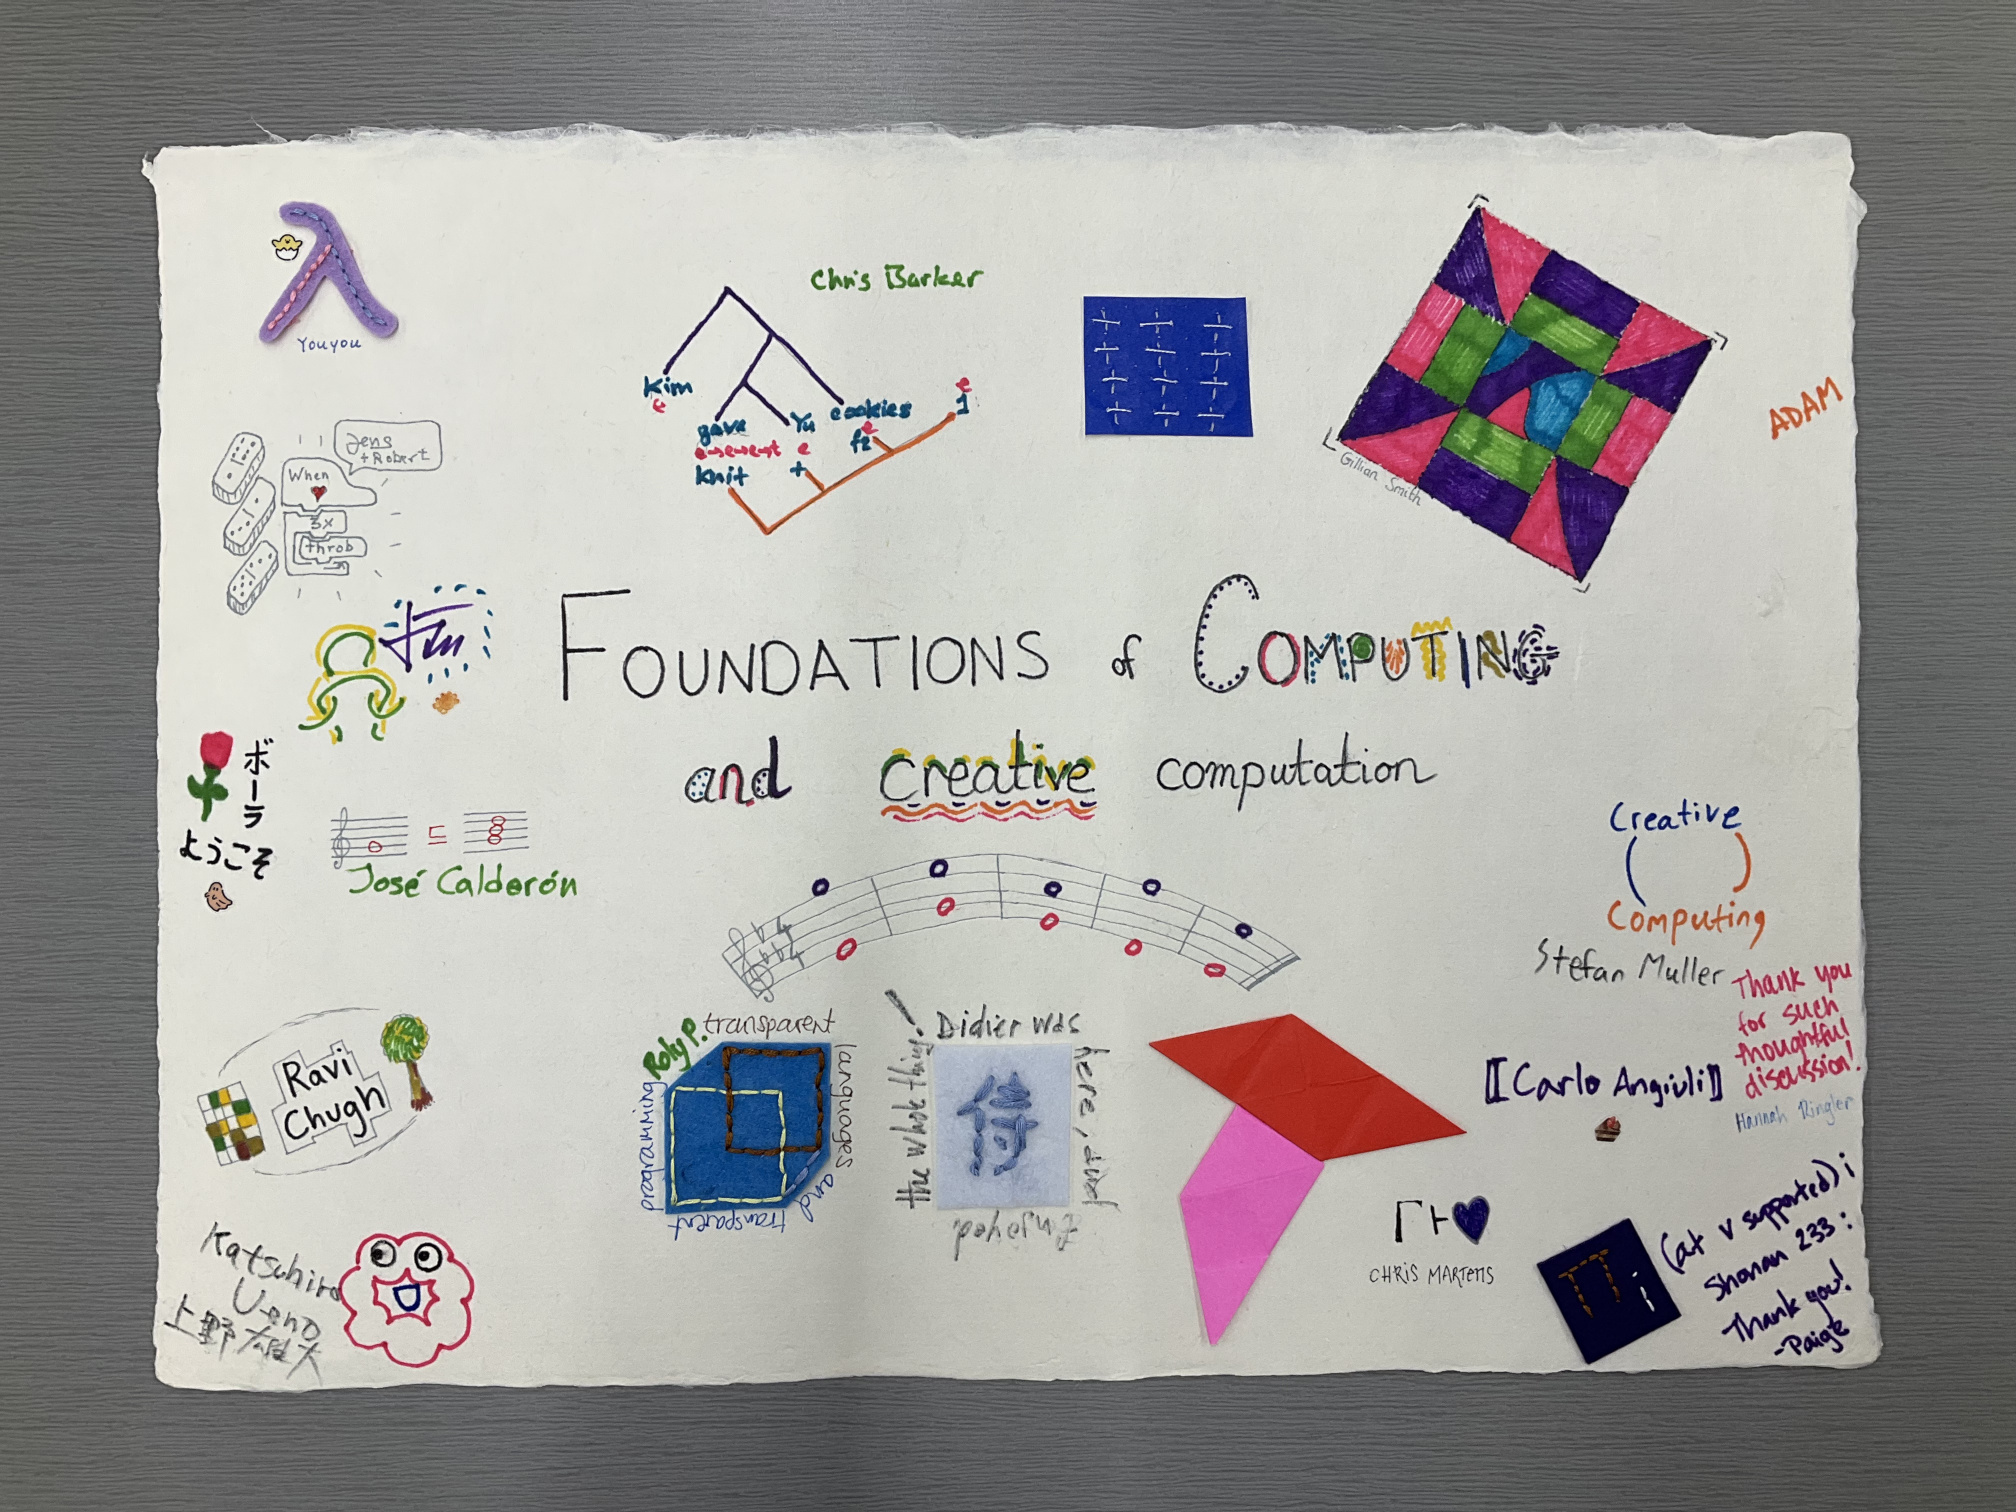 λ
Youyou
Chris Barker
Kim
e
gave
Yu
cookies
e→e→e→t
e
e
knit
+
f2
1
e
Gillian Smith
ADAM
Jens
+Robert
When
3x
throb
FOUNDATIONS of COMPUTING
and creative computation
ボーラ
ようこそ
⊑
José Calderón
Creative
Computing
Stefan Muller
Thank you
for such
thoughtful
discussion!
Hannah Ringler
Ravi
Chugh
Roly P.
transparent
languages and
transparent
programming
Didier was
here, and
Enjoyed
the whole thing!
⟦Carlo Angiuli⟧
Γ⊢
CHRIS MARTENS
Π i
(at v supported) i
Shonan 233:
Thank you!
-Paige
Katsuhiro
Ueno
上野雄大